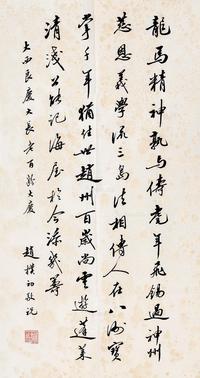 龍馬精神孰與儔虎年飛錫過神州
慈恩義學流三島法相傳人在八洲寶
掌千年猶住世趙州百歲尚雲遊蓬萊
清淺公能記海屋於今添幾籌
大西良慶大長老百齡大慶
趙樸初敬祝